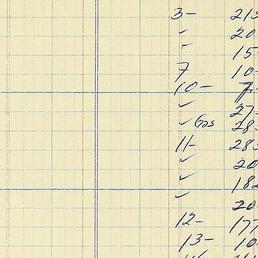 3- 215
" 20
" 15
7 10-
10- 7-
✓ 27-
✓ Gas 28-
11- 283
✓ 20
✓ 182
✓ 20
12- 177
13- 10